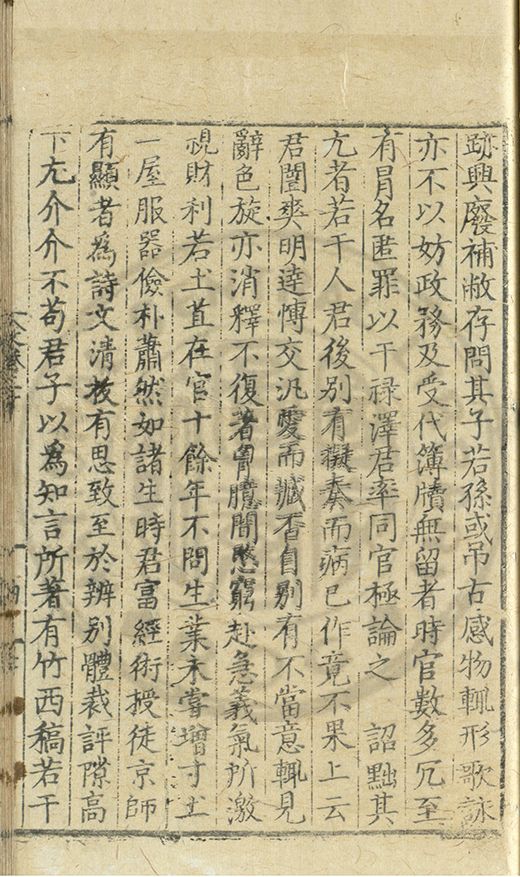 跡興廢補敝存問其子若孫或吊古感物輒形歌詠
亦不以妨政務及受代簿牘無留者時官數多冗至
有冐名匿罪以干祿澤君率同官極論之　詔黜其
尤者若干人君後别有擬奏而病已作竟不果上云
君闓爽明逹愽交汎愛而臧否自别有不當意輒見
辭色旋亦消釋不復著胷臆間愍窮赴急義氣所激
視財利若土苴在官十餘年不問生業未嘗增寸土
一屋服器儉朴蕭然如諸生時君富經術授徒京師
有顯者為詩文清拔有思致至於辨别體裁評隲高
下尤介介不苟君子以為知言所著有竹西稿若干